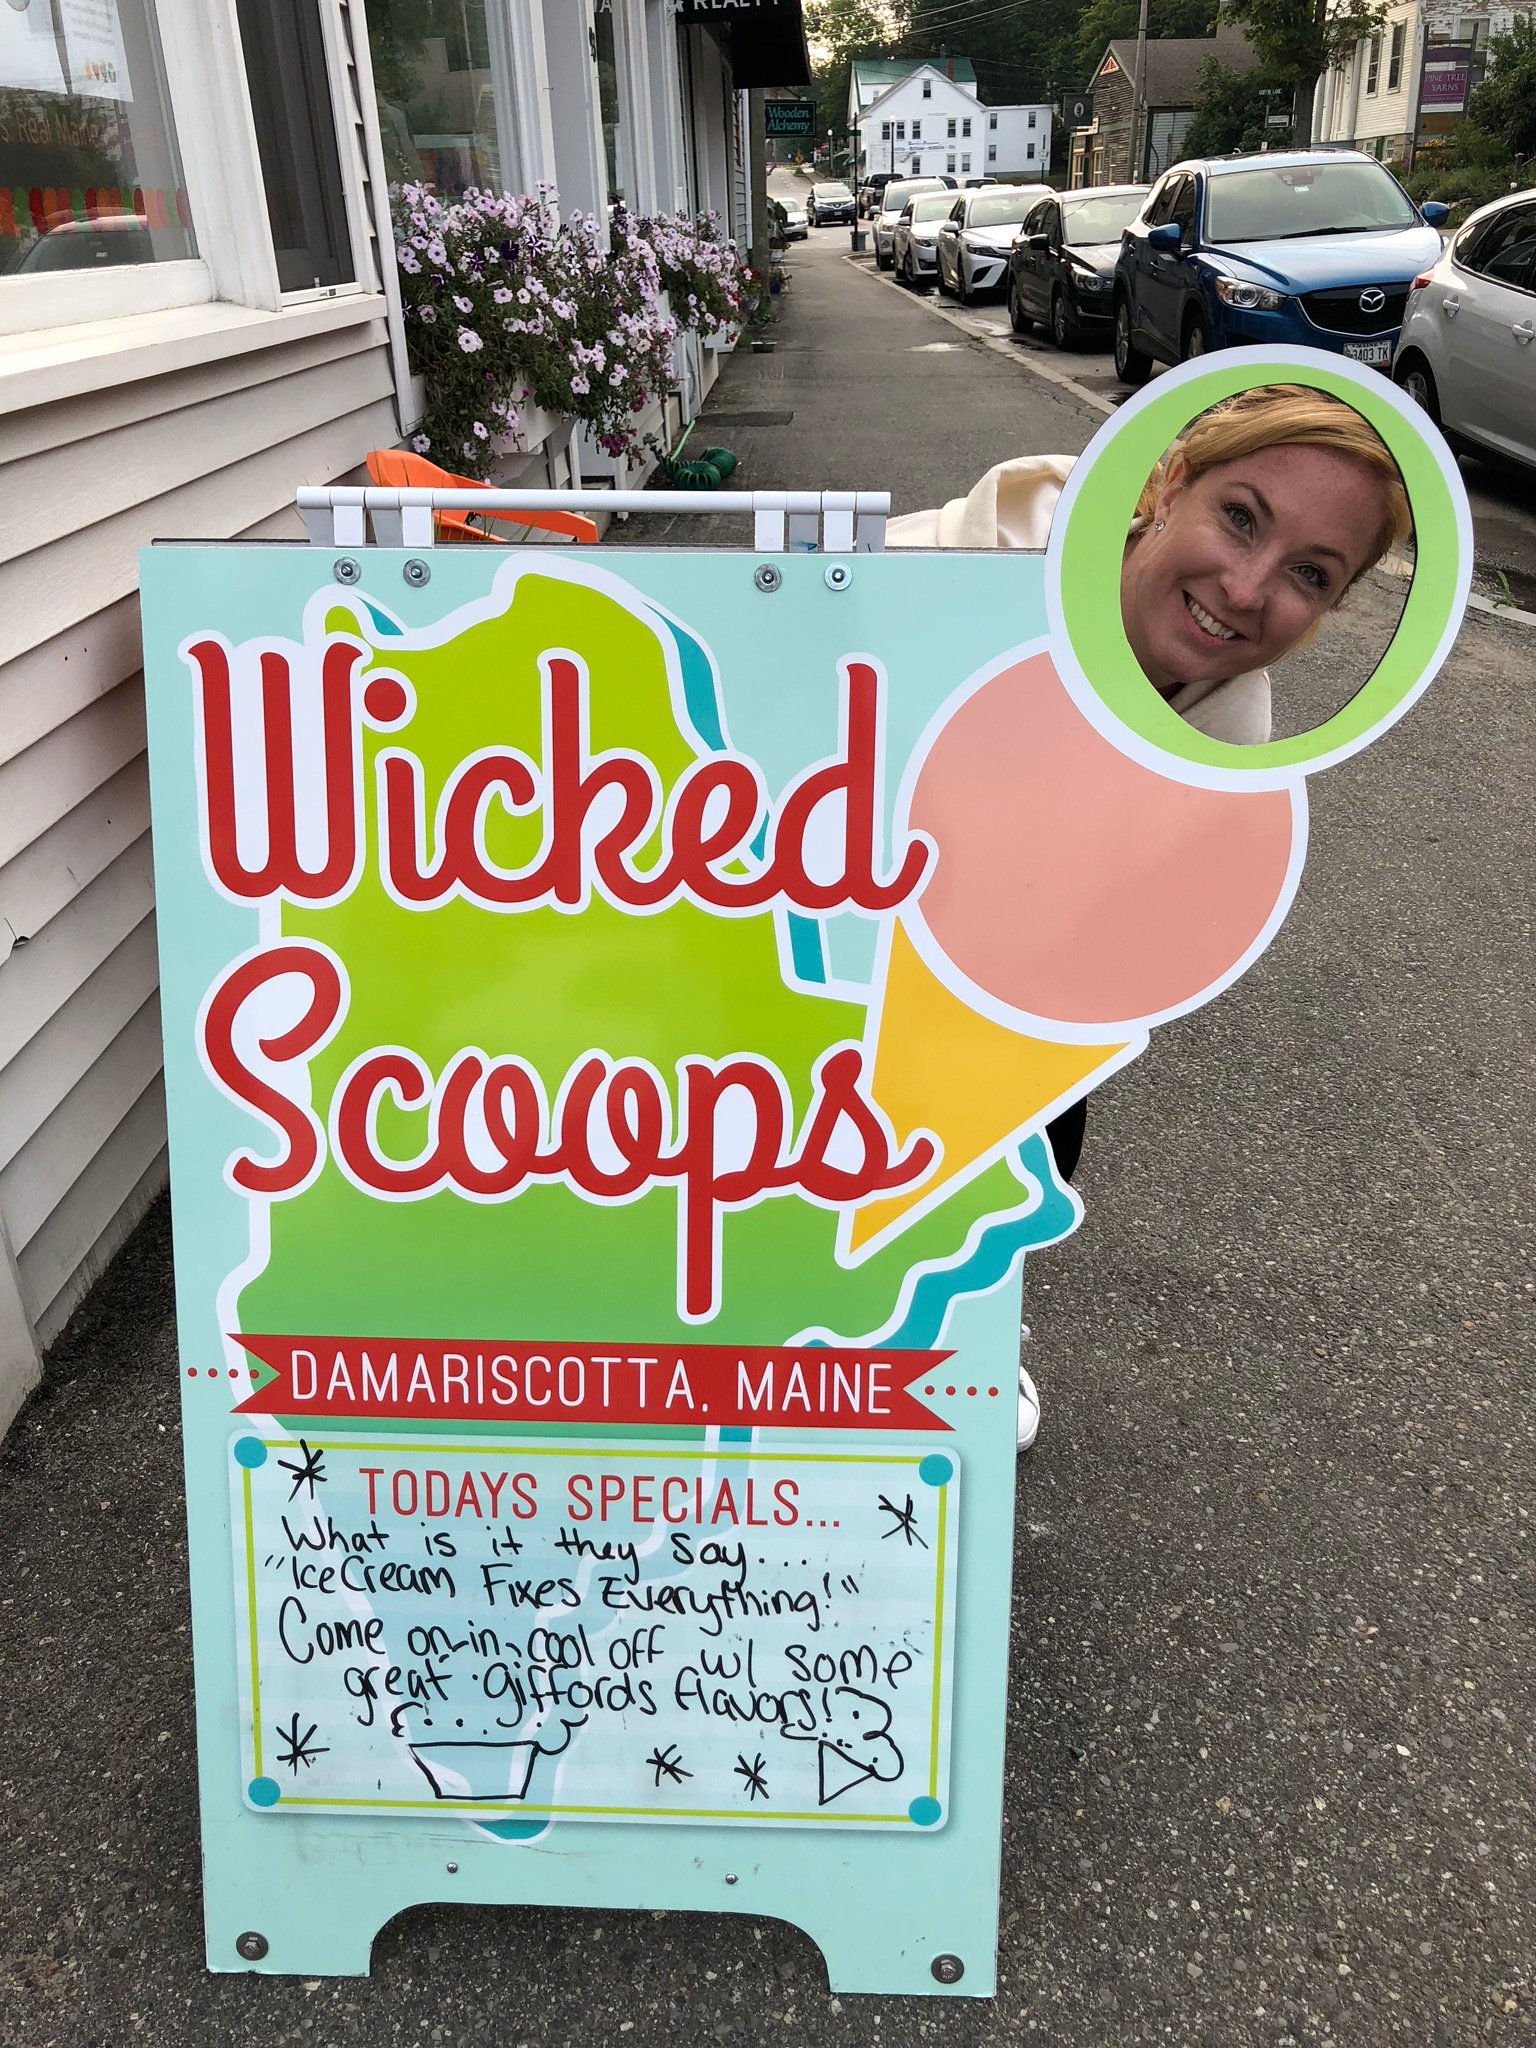 REALTY
Wooden
Alchemy
PINE TREE
YARNS
3403 TK
Wicked
Scoops
DAMARISCOTTA, MAINE
TODAYS SPECIALS...
What is it they say...
"Ice Cream Fixes Everything!"
Come on-in, cool off w/ some
great giffords flavors!